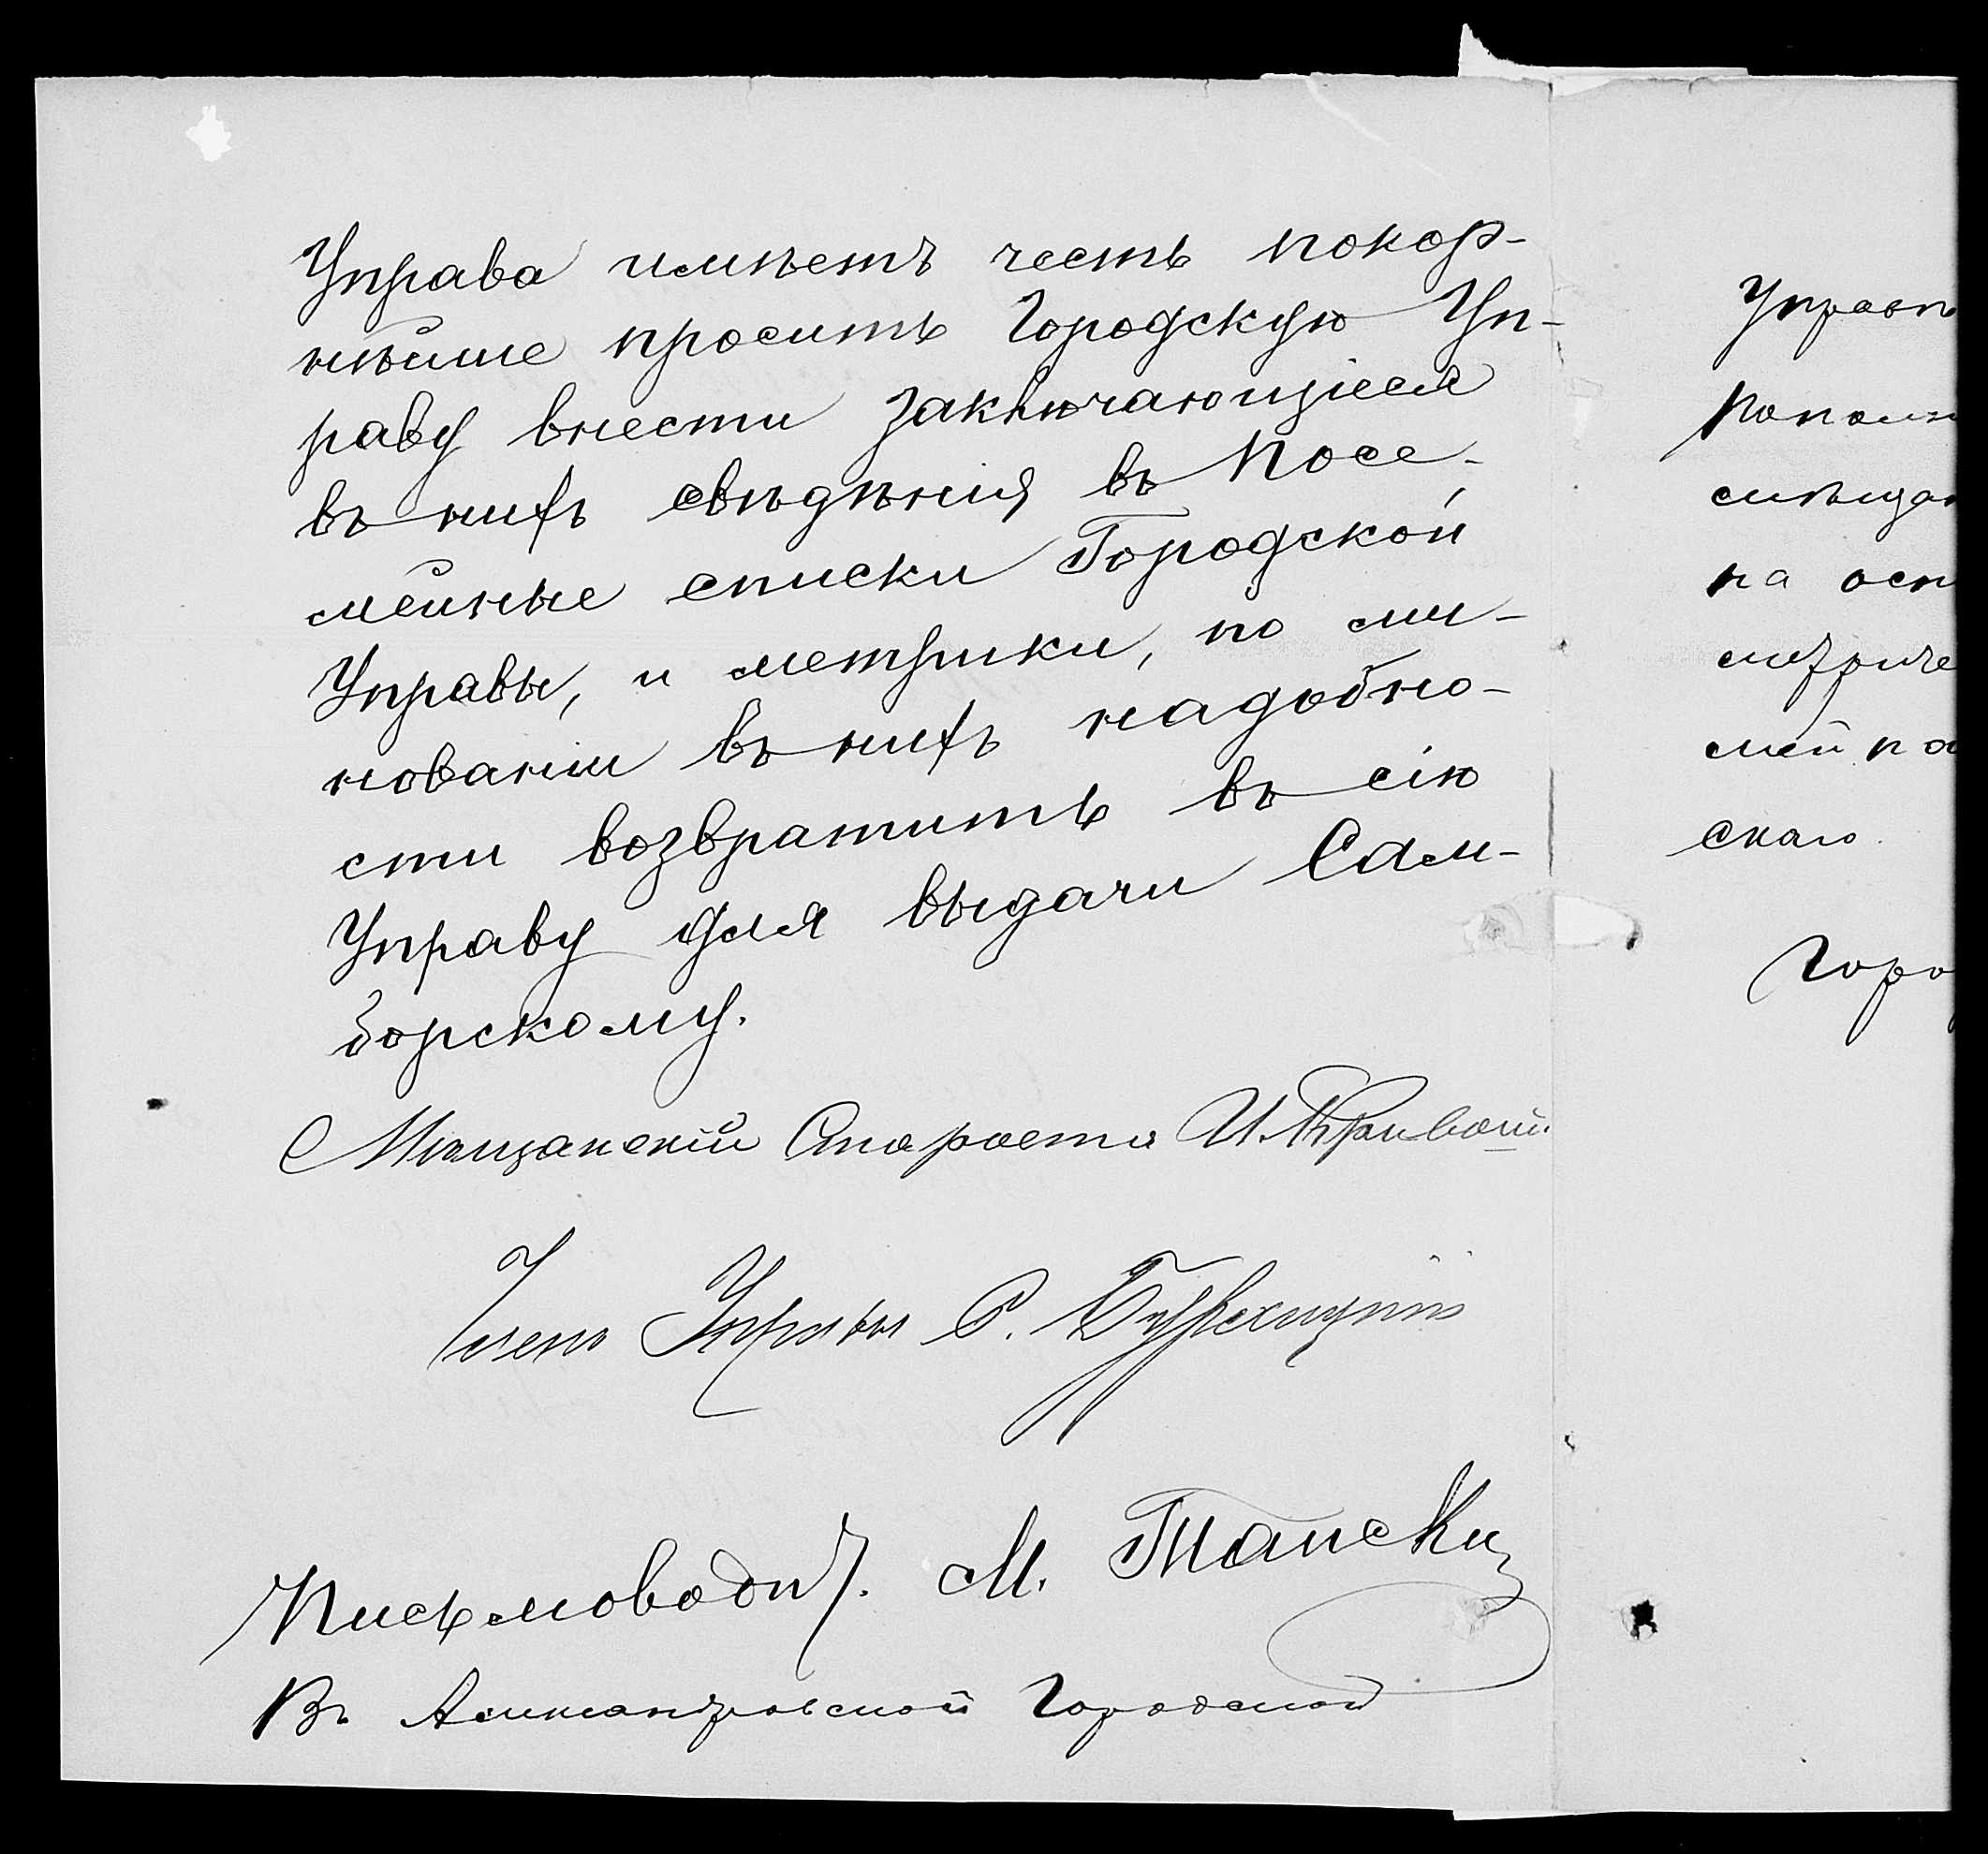 Управа имѣетъ честь покор-
нѣйше просить Городскую Уп-
раву внести заключающіеся
въ нихъ свѣдѣнія въ Посе-
мейные списки Городской
Управы, и метрики, по ми-
нованіи въ нихъ надобно-
сти возвратить въ сію
Управу для выдачи Сам-
борскому.
Мѣщанскій Староста И.
Членъ Управы С.
Письмовод. М. Тански
Въ Александровской Городской
Управ
на осн
мей
скаго
Горо